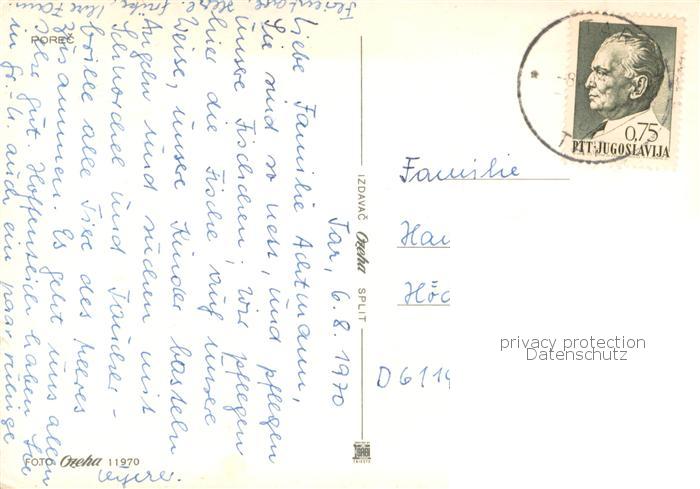 POREČ
Tar, 6.8.1970
Liebe Familie Achtmann,
Sie sind so nett, und pflegen
unsere Fischchen; wir pflegen
hier die Fische auf unsere
Weise, unsere Kinder basteln
Angeln und suchen mit
Schnorchel und Taucher-
brille alle Tiere des Meeres
zusammen. Es geht uns allen
sehr gut. Hoffentlich haben Sie
in auch ein paar ruhige
Ferientage.
FOTO Ozeha 11970
IZDAVAČ Ozeha SPLIT
0,75
PTT JUGOSLAVIJA
Familie
Ha
Hö
D 6114
privacy protection
Datenschutz